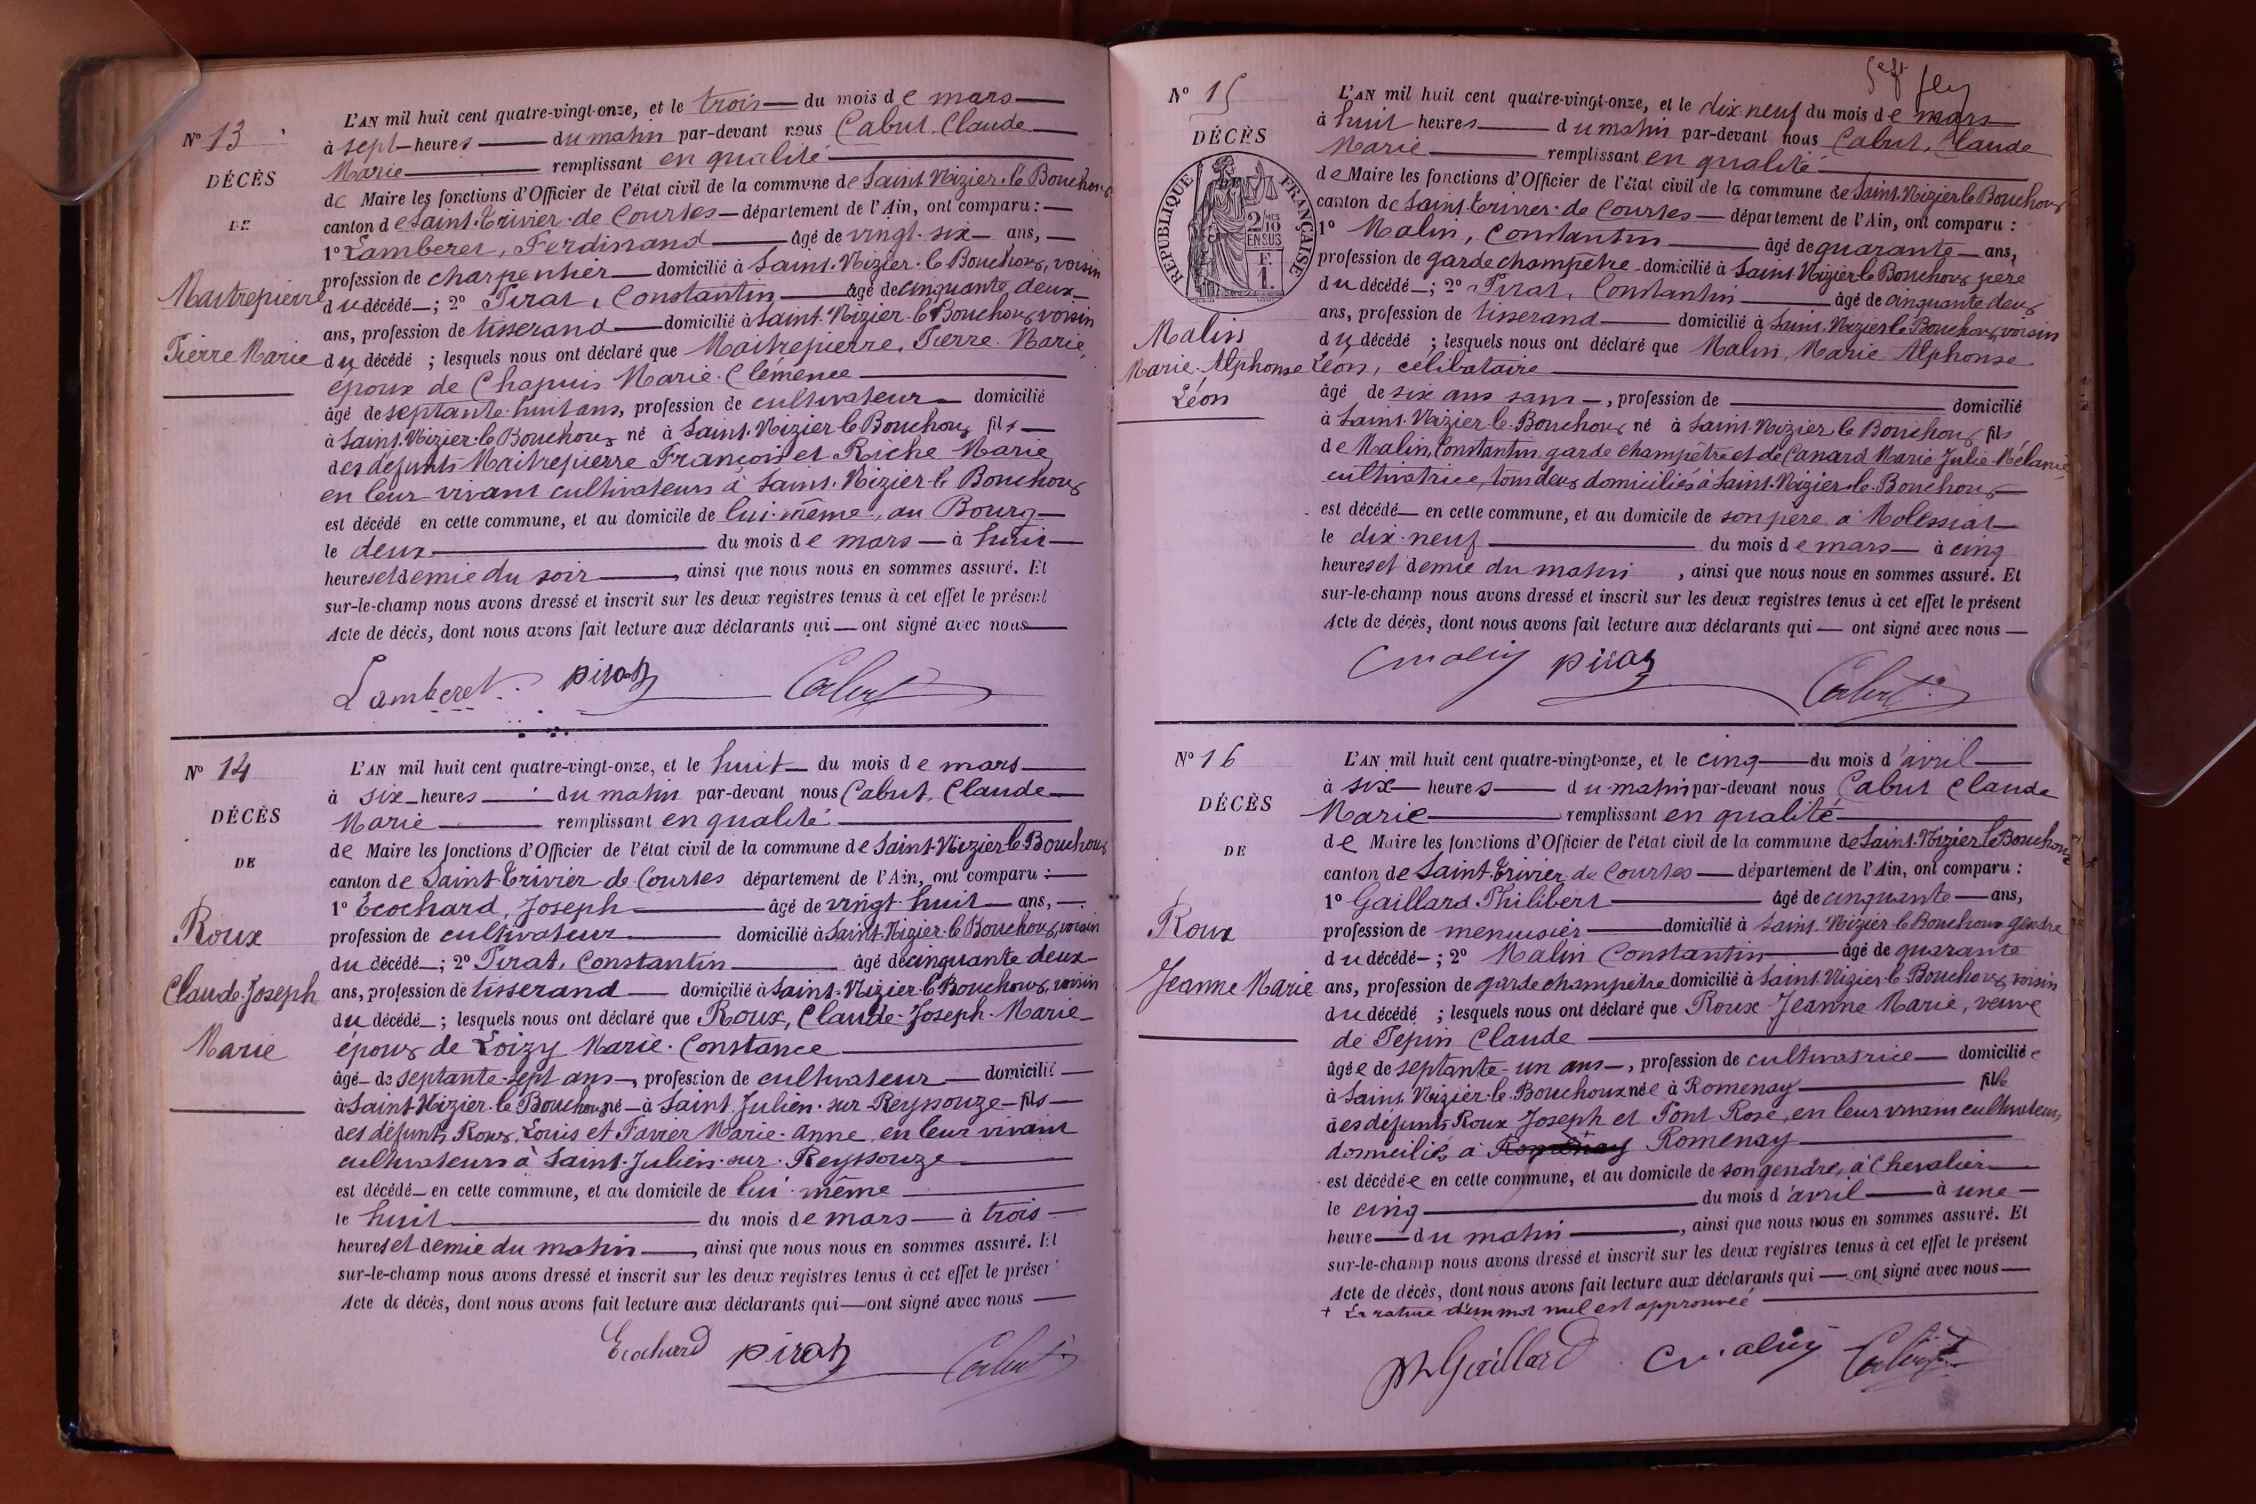 Nº 13
DÉCÈS
DE
Maitrepierre
Pierre Marie
L'AN mil huit cent quatre-vingt-onze, et le trois du mois de mars
à sept heures du matin par-devant nous Cabut, Claude
Marie remplissant en qualité
de Maire les fonctions d'Officier de l'état civil de la commune de Saint-Nizier-le-Bouchoux
canton de Saint-Trivier-de-Courtes département de l'Ain, ont comparu :
1º Lamberet, Ferdinand âgé de vingt-six ans,
profession de charpentier domicilié à Saint-Nizier-le-Bouchoux, voisin
du décédé ; 2º Pirat, Constantin âgé de cinquante deux
ans, profession de tisserand domicilié à Saint-Nizier-le-Bouchoux voisin
du décédé ; lesquels nous ont déclaré que Maitrepierre, Pierre Marie,
époux de Chapuis Marie-Clémence
âgé de septante-huit ans, profession de cultivateur domicilié
à Saint-Nizier-le-Bouchoux né à Saint-Nizier-le-Bouchoux fils
des défunts Maitrepierre François et Riche Marie
en leur vivant cultivateurs à Saint-Nizier-le-Bouchoux
est décédé en cette commune, et au domicile de lui-même, au Bourg
le deux du mois de mars à huit
heures et demie du soir, ainsi que nous nous en sommes assuré. Et
sur-le-champ nous avons dressé et inscrit sur les deux registres tenus à cet effet le présent
Acte de décès, dont nous avons fait lecture aux déclarants qui ont signé avec nous
Lamberet pirat Cabut
Nº 14
DÉCÈS
DE
Roux
Claude-Joseph
Marie
L'AN mil huit cent quatre-vingt-onze, et le huit du mois de mars
à six heures du matin par-devant nous Cabut, Claude
Marie remplissant en qualité
de Maire les fonctions d'Officier de l'état civil de la commune de Saint-Nizier-le-Bouchoux
canton de Saint-Trivier-de-Courtes département de l'Ain, ont comparu :
1º Ecochard, Joseph âgé de vingt-huit ans,
profession de cultivateur domicilié à Saint-Nizier-le-Bouchoux, voisin
du décédé ; 2º Pirat, Constantin âgé de cinquante deux
ans, profession de tisserand domicilié à Saint-Nizier-le-Bouchoux, voisin
du décédé ; lesquels nous ont déclaré que Roux, Claude-Joseph-Marie
époux de Loizy Marie-Constance
âgé de septante-sept ans, profession de cultivateur domicilié
à Saint-Nizier-le-Bouchoux né à Saint-Julien-sur-Reyssouze fils
des défunts Roux, Louis et Favier Marie-Anne, en leur vivant
cultivateurs à Saint-Julien-sur-Reyssouze
est décédé en cette commune, et au domicile de lui-même
le huit du mois de mars à trois
heures et demie du matin, ainsi que nous nous en sommes assuré. Et
sur-le-champ nous avons dressé et inscrit sur les deux registres tenus à cet effet le présent
Acte de décès, dont nous avons fait lecture aux déclarants qui ont signé avec nous
Ecochard pirat Cabut
Nº 15
DÉCÈS
RÉPUBLIQUE FRANÇAISE
2/10 MES
EN SUS
F.
1.
Malin
Marie-Alphonse
Léon
L'AN mil huit cent quatre-vingt-onze, et le dix neuf du mois de mars
à huit heures du matin par-devant nous Cabut, Claude
Marie remplissant en qualité
de Maire les fonctions d'Officier de l'état civil de la commune de Saint-Nizier-le-Bouchoux
canton de Saint-Trivier-de-Courtes département de l'Ain, ont comparu :
1º Malin, Constantin âgé de quarante ans,
profession de garde champêtre domicilié à Saint-Nizier-le-Bouchoux père
du décédé ; 2º Pirat, Constantin âgé de cinquante deux
ans, profession de tisserand domicilié à Saint-Nizier-le-Bouchoux, voisin
du décédé ; lesquels nous ont déclaré que Malin, Marie-Alphonse
Léon, célibataire
âgé de six ans sans, profession de domicilié
à Saint-Nizier-le-Bouchoux né à Saint-Nizier-le-Bouchoux fils
de Malin, Constantin garde champêtre et de Canard Marie Julie-Mélanie,
cultivatrice, tous deux domiciliés à Saint-Nizier-le-Bouchoux
est décédé en cette commune, et au domicile de son père à Molessiat
le dix-neuf du mois de mars à cinq
heures et demie du matin, ainsi que nous nous en sommes assuré. Et
sur-le-champ nous avons dressé et inscrit sur les deux registres tenus à cet effet le présent
Acte de décès, dont nous avons fait lecture aux déclarants qui ont signé avec nous
C malin pirat Cabut
Nº 16
DÉCÈS
DE
Roux
Jeanne Marie
L'AN mil huit cent quatre-vingt-onze, et le cinq du mois d'avril
à six heures du matin par-devant nous Cabut Claude
Marie remplissant en qualité
de Maire les fonctions d'Officier de l'état civil de la commune de Saint-Nizier-le-Bouchoux
canton de Saint-Trivier de Courtes département de l'Ain, ont comparu :
1º Gaillard Philibert âgé de cinquante ans,
profession de menuisier domicilié à Saint-Nizier-le-Bouchoux gendre
du décédé ; 2º Malin Constantin âgé de quarante
ans, profession de garde champêtre domicilié à Saint-Nizier-le-Bouchoux, voisin
du décédé ; lesquels nous ont déclaré que Roux Jeanne Marie, veuve
de Pepin Claude
âgée de septante-un ans, profession de cultivatrice domiciliée
à Saint-Nizier-le-Bouchoux née à Romenay fille
des défunts Roux Joseph et Pont Rose, en leur vivant cultivateurs,
domiciliés à Romenay Romenay
est décédée en cette commune, et au domicile de son gendre, à Chevalier
le cinq du mois d'avril à une
heure du matin, ainsi que nous nous en sommes assuré. Et
sur-le-champ nous avons dressé et inscrit sur les deux registres tenus à cet effet le présent
Acte de décès, dont nous avons fait lecture aux déclarants qui ont signé avec nous
+ La rature d'un mot nul est approuvée
Ph Gaillard C malin Cabut